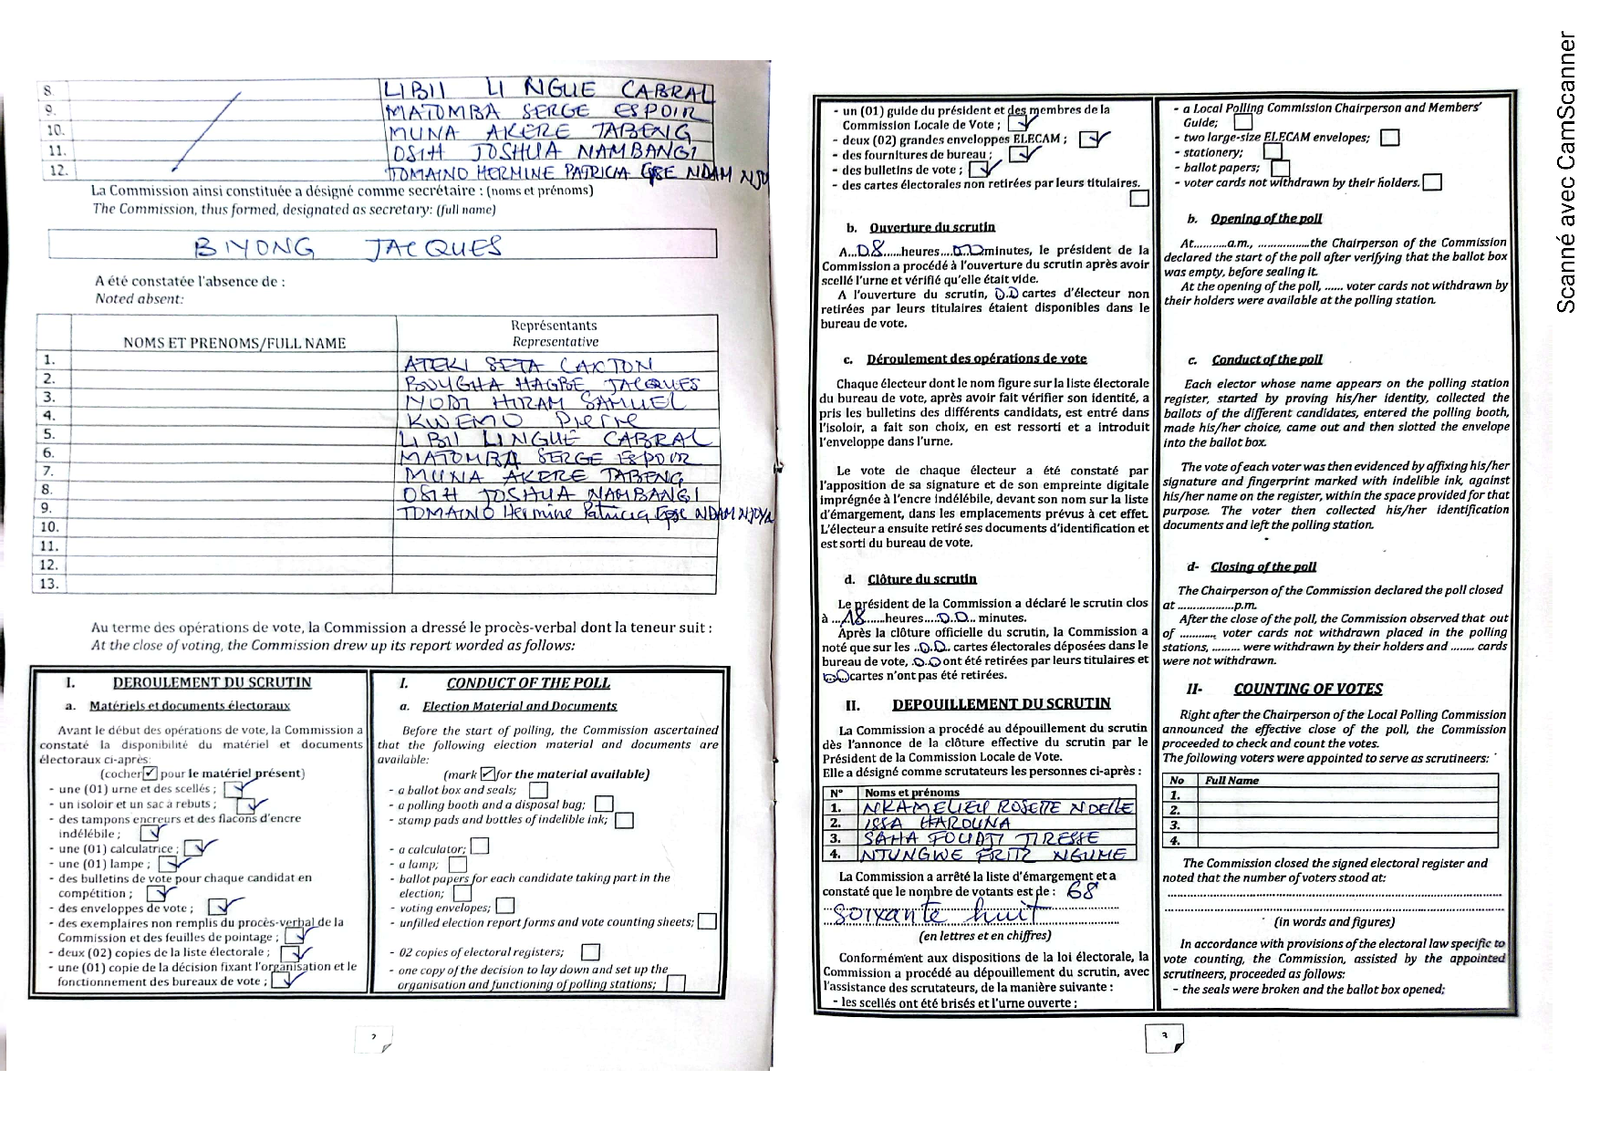 8. LIBII LI NGUE CABRAL
9. MATOMBA SERGE ESPOIR
10. MUNA AKERE TABENG
11. OSIH JOSHUA NAMBANGI
12. TOMAINO HERMINE PATRICIA Epse NDAM NJO
La Commission ainsi constituée a désigné comme secrétaire : (noms et prénoms)
The Commission, thus formed, designated as secretary: (full name)
BIYONG JACQUES
A été constatée l'absence de :
Noted absent:
NOMS ET PRENOMS/FULL NAME
Représentants
Representative
1. ATEKI SETA CAXTON
2. BOUGHA HAGBE JACQUES
3. IYODI HIRAM SAMUEL
4. KWEMO Pierre
5. LIBII LINGUE CABRAL
6. MATOMBA SERGE ESPOIR
7. MUNA AKERE TABENG
8. OSIH JOSHUA NAMBANGI
9. TOMAINO Hermine Patricia Epse NDAM NJOYA
10.
11.
12.
13.
Au terme des opérations de vote, la Commission a dressé le procès-verbal dont la teneur suit :
At the close of voting, the Commission drew up its report worded as follows:
I. DEROULEMENT DU SCRUTIN
a. Matériels et documents électoraux
Avant le début des opérations de vote, la Commission a
constaté la disponibilité du matériel et documents
électoraux ci-après:
(cocher ☑ pour le matériel présent)
- une (01) urne et des scellés ; ☑
- un isoloir et un sac à rebuts ; ☑
- des tampons encreurs et des flacons d'encre
indélébile ; ☑
- une (01) calculatrice ; ☑
- une (01) lampe ; ☑
- des bulletins de vote pour chaque candidat en
compétition ; ☑
- des enveloppes de vote ; ☑
- des exemplaires non remplis du procès-verbal de la
Commission et des feuilles de pointage ; ☑
- deux (02) copies de la liste électorale ; ☑
- une (01) copie de la décision fixant l'organisation et le
fonctionnement des bureaux de vote ; ☑
I. CONDUCT OF THE POLL
a. Election Material and Documents
Before the start of polling, the Commission ascertained
that the following election material and documents are
available:
(mark ☑ for the material available)
- a ballot box and seals; ☐
- a polling booth and a disposal bag; ☐
- stamp pads and bottles of indelible ink; ☐
- a calculator; ☐
- a lamp; ☐
- ballot papers for each candidate taking part in the
election; ☐
- voting envelopes; ☐
- unfilled election report forms and vote counting sheets; ☐
- 02 copies of electoral registers; ☐
- one copy of the decision to lay down and set up the
organisation and functioning of polling stations; ☐
2
- un (01) guide du président et des membres de la
Commission Locale de Vote ; ☑
- deux (02) grandes enveloppes ELECAM ; ☑
- des fournitures de bureau ; ☑
- des bulletins de vote ; ☑
- des cartes électorales non retirées par leurs titulaires.
☐
b. Ouverture du scrutin
A...08......heures....00minutes, le président de la
Commission a procédé à l'ouverture du scrutin après avoir
scellé l'urne et vérifié qu'elle était vide.
A l'ouverture du scrutin, 0.0 cartes d'électeur non
retirées par leurs titulaires étaient disponibles dans le
bureau de vote.
c. Déroulement des opérations de vote
Chaque électeur dont le nom figure sur la liste électorale
du bureau de vote, après avoir fait vérifier son identité, a
pris les bulletins des différents candidats, est entré dans
l'isoloir, a fait son choix, en est ressorti et a introduit
l'enveloppe dans l'urne.
Le vote de chaque électeur a été constaté par
l'apposition de sa signature et de son empreinte digitale
imprégnée à l'encre indélébile, devant son nom sur la liste
d'émargement, dans les emplacements prévus à cet effet.
L'électeur a ensuite retiré ses documents d'identification et
est sorti du bureau de vote.
d. Clôture du scrutin
Le président de la Commission a déclaré le scrutin clos
à ...18......heures....00... minutes.
Après la clôture officielle du scrutin, la Commission a
noté que sur les ..00.. cartes électorales déposées dans le
bureau de vote, .00 ont été retirées par leurs titulaires et
00 cartes n'ont pas été retirées.
II. DEPOUILLEMENT DU SCRUTIN
La Commission a procédé au dépouillement du scrutin
dès l'annonce de la clôture effective du scrutin par le
Président de la Commission Locale de Vote.
Elle a désigné comme scrutateurs les personnes ci-après :
N° Noms et prénoms
1. NKAMELIEU ROSETTE NDELLE
2. ISSA HAROUNA
3. SAHA FOUDJI TIRESSE
4. NTUNGWE FRITZ NGUME
La Commission a arrêté la liste d'émargement et a
constaté que le nombre de votants est de : 68
soixante huit
(en lettres et en chiffres)
Conformément aux dispositions de la loi électorale, la
Commission a procédé au dépouillement du scrutin, avec
l'assistance des scrutateurs, de la manière suivante :
- les scellés ont été brisés et l'urne ouverte ;
- a Local Polling Commission Chairperson and Members'
Guide; ☐
- two large-size ELECAM envelopes; ☐
- stationery; ☐
- ballot papers; ☐
- voter cards not withdrawn by their holders. ☐
b. Opening of the poll
At...........a.m., .................the Chairperson of the Commission
declared the start of the poll after verifying that the ballot box
was empty, before sealing it.
At the opening of the poll, ...... voter cards not withdrawn by
their holders were available at the polling station.
c. Conduct of the poll
Each elector whose name appears on the polling station
register, started by proving his/her identity, collected the
ballots of the different candidates, entered the polling booth,
made his/her choice, came out and then slotted the envelope
into the ballot box.
The vote of each voter was then evidenced by affixing his/her
signature and fingerprint marked with indelible ink, against
his/her name on the register, within the space provided for that
purpose. The voter then collected his/her identification
documents and left the polling station.
d- Closing of the poll
The Chairperson of the Commission declared the poll closed
at .................p.m.
After the close of the poll, the Commission observed that out
of ........... voter cards not withdrawn placed in the polling
stations, ......... were withdrawn by their holders and ........ cards
were not withdrawn.
II- COUNTING OF VOTES
Right after the Chairperson of the Local Polling Commission
announced the effective close of the poll, the Commission
proceeded to check and count the votes.
The following voters were appointed to serve as scrutineers:
No Full Name
1.
2.
3.
4.
The Commission closed the signed electoral register and
noted that the number of voters stood at:
(in words and figures)
In accordance with provisions of the electoral law specific to
vote counting, the Commission, assisted by the appointed
scrutineers, proceeded as follows:
- the seals were broken and the ballot box opened;
3
Scanné avec CamScanner